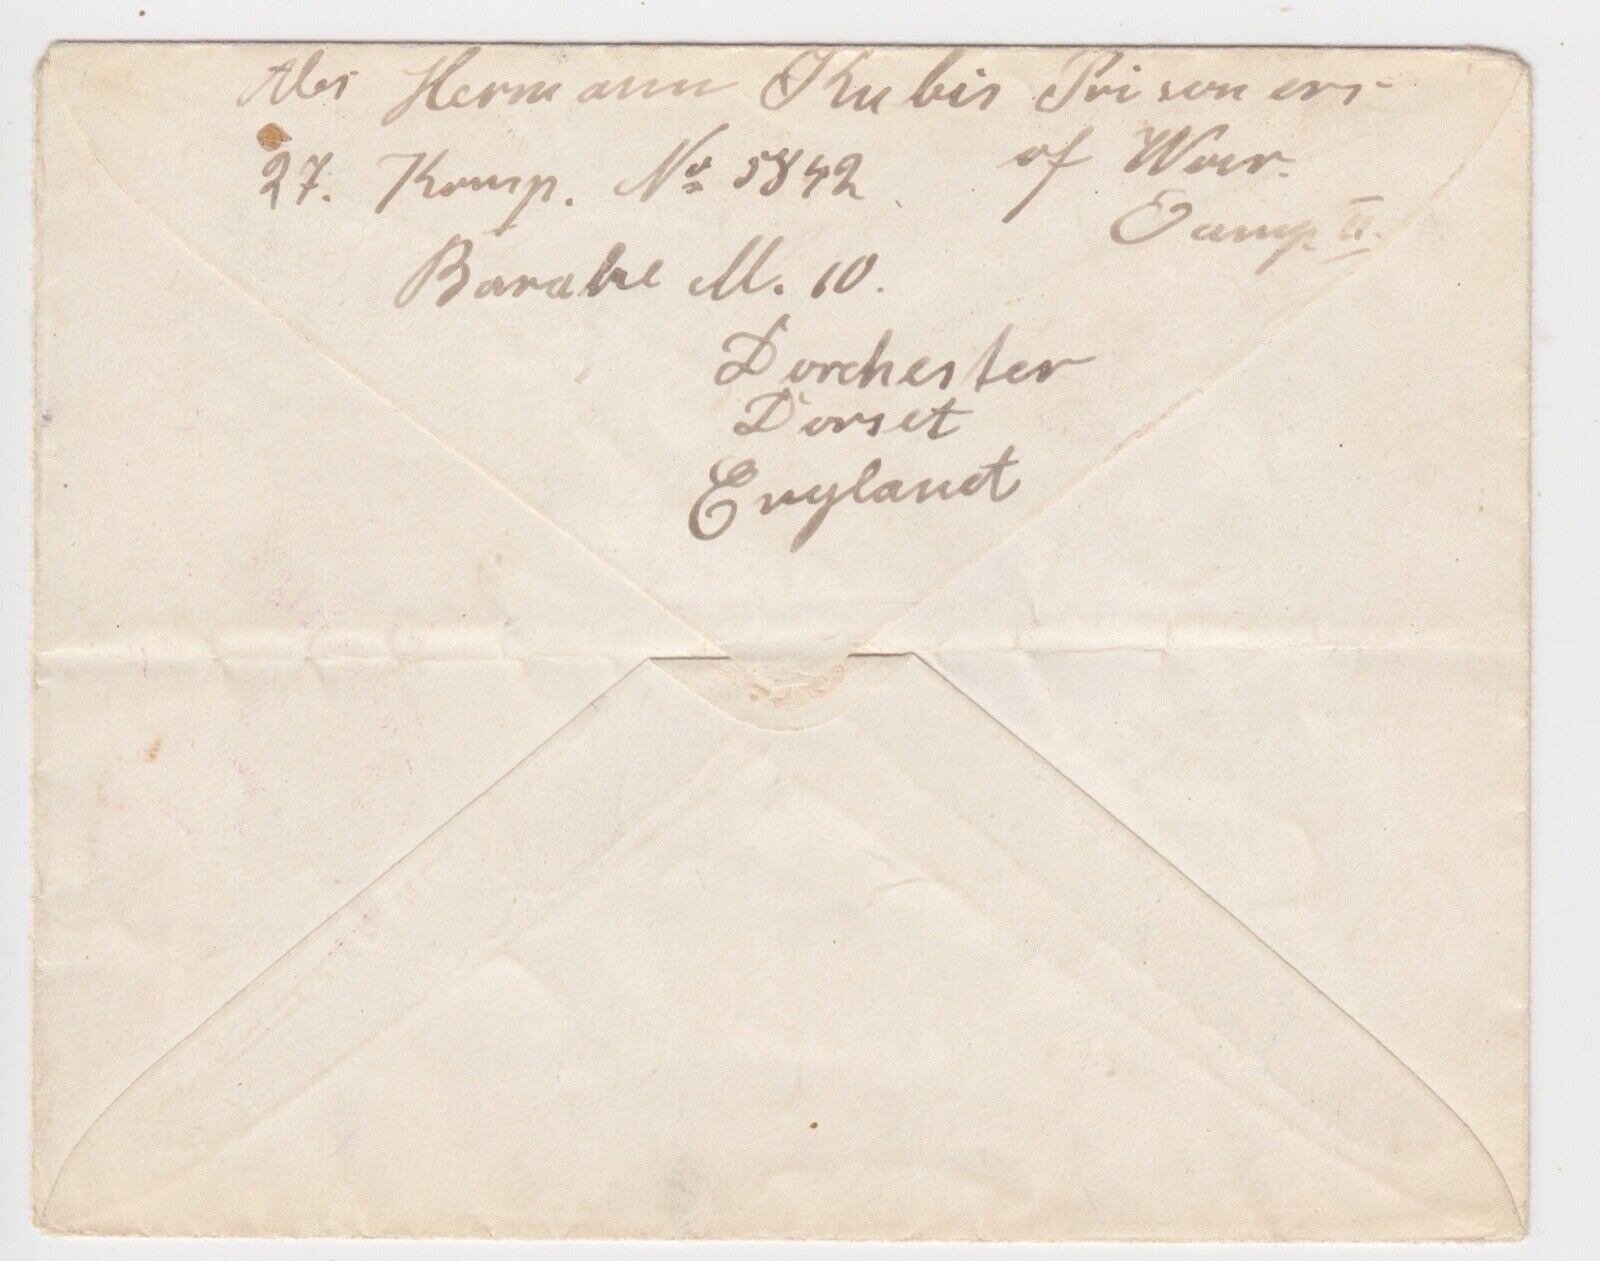 Abs Hermann Kubis Prisoners
27. Komp. No 5842 of War.
Camp II.
Barake M. 10.
Dorchester
Dorset
England